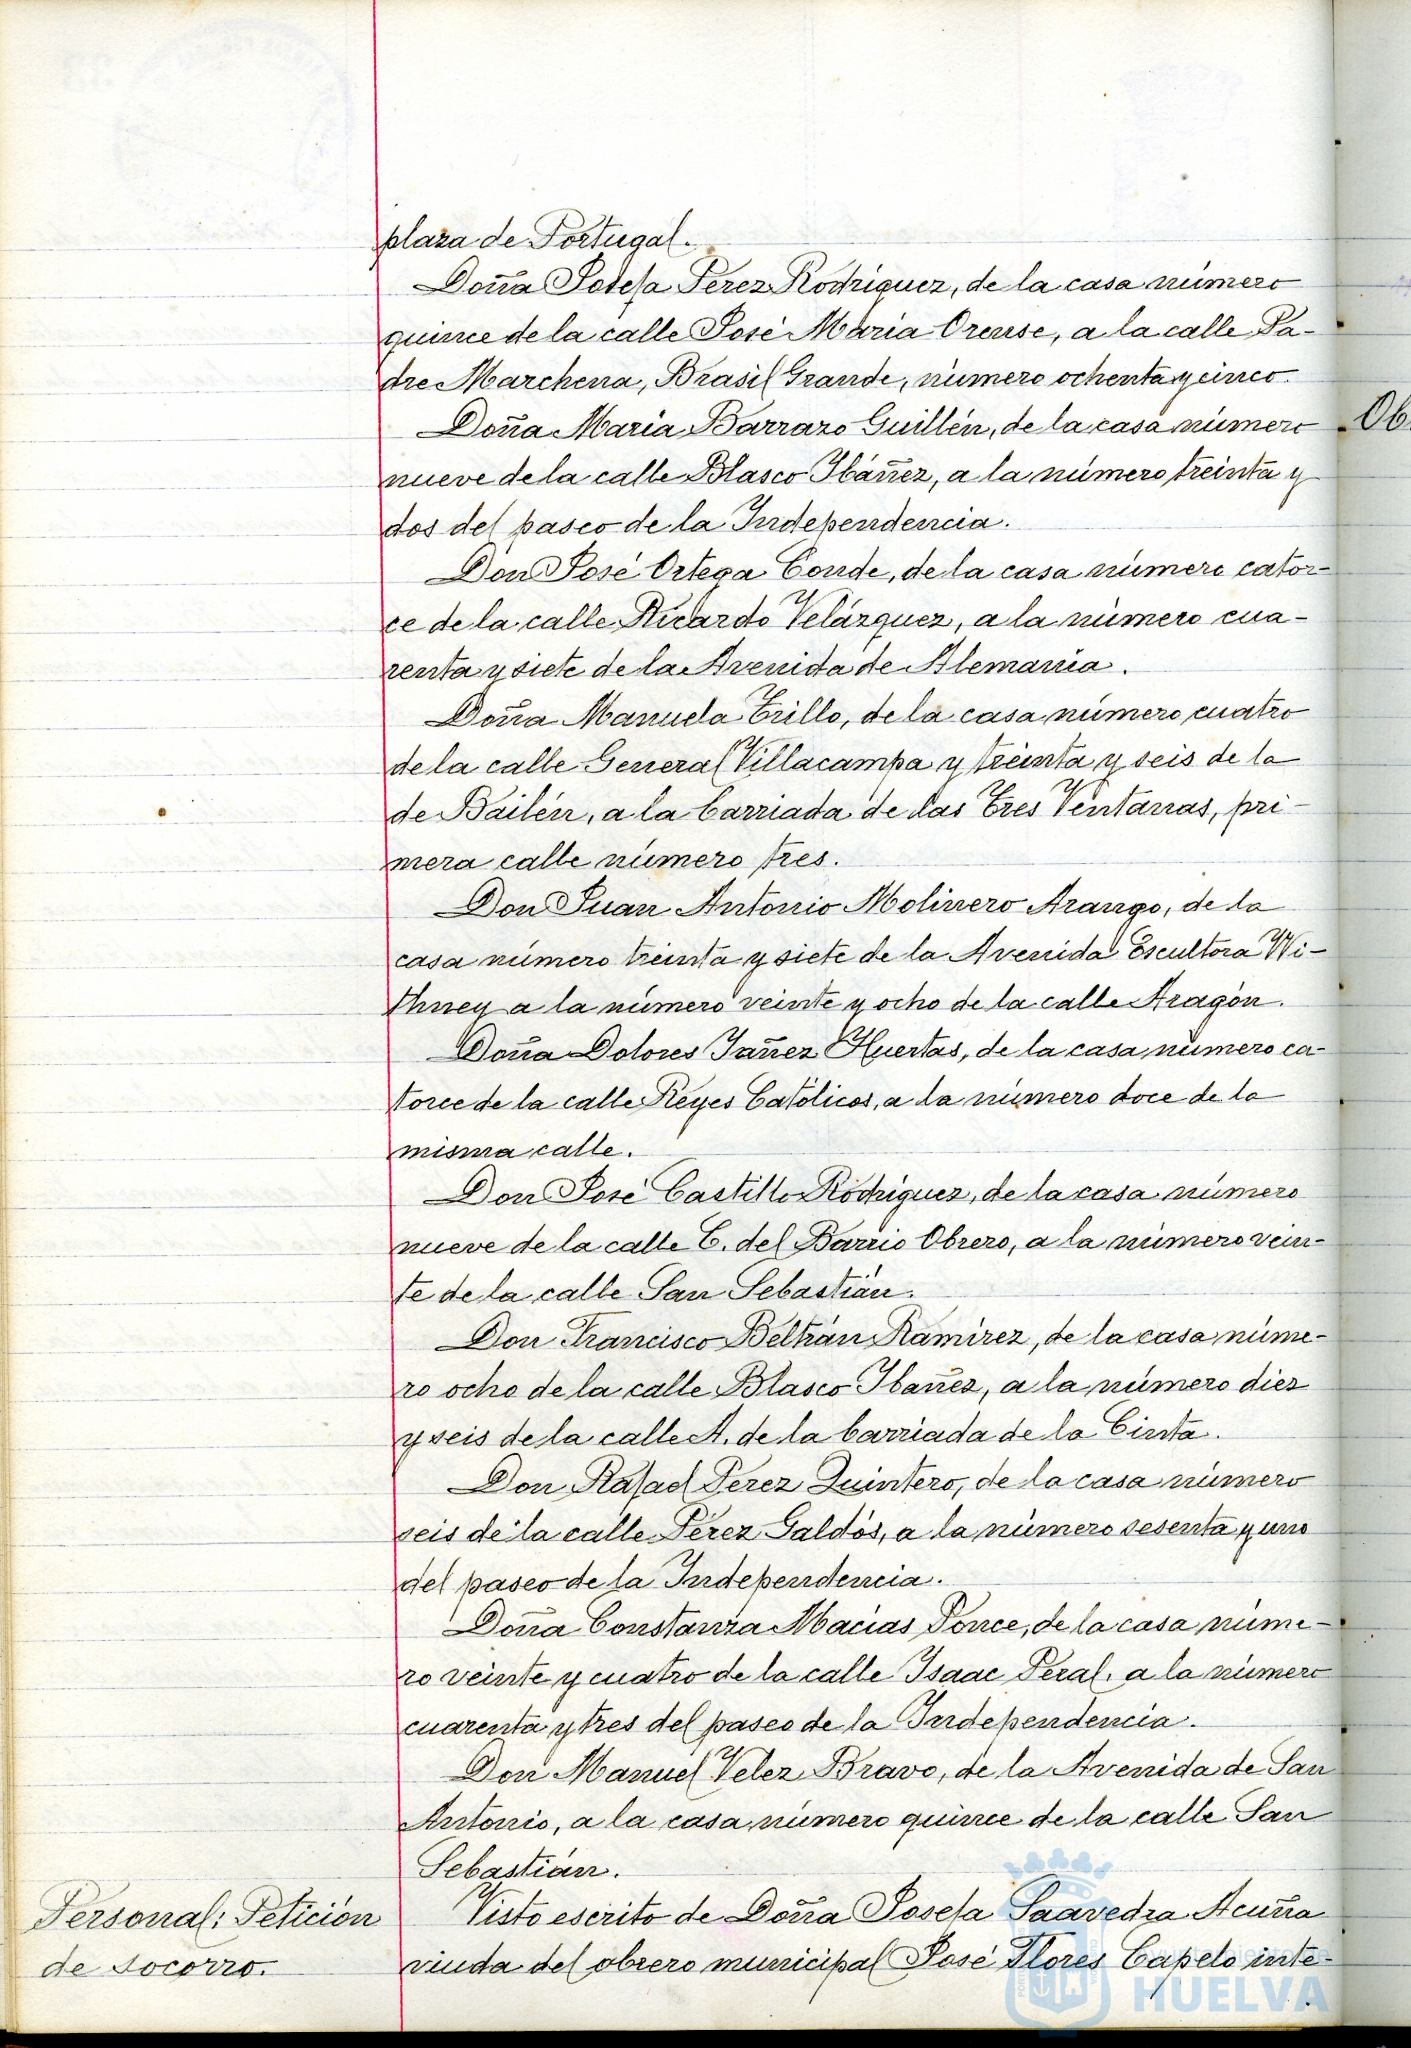 plaza de Portugal.
Doña Josefa Perez Rodriguez, de la casa número
quince de la calle José Maria Orense, a la calle Pa-
dre Marchena, Brasil Grande, número ochenta y cinco.
Doña Maria Barrazo Guillén, de la casa número
nueve de la calle Blasco Ibáñez, a la número treinta y
dos del paseo de la Independencia.
Don José Ortega Conde, de la casa número cator-
ce de la calle Ricardo Velázquez, a la número cua-
renta y siete de la Avenida de Alemania.
Doña Manuela Trillo, de la casa número cuatro
de la calle General Villacampa y treinta y seis de la
de Bailén, a la barriada de las Tres Ventanas, pri-
mera calle número tres.
Don Juan Antonio Molinero Arango, de la
casa número treinta y siete de la Avenida Escultora Wi-
thney a la número veinte y ocho de la calle Aragón.
Doña Dolores Iañez Huertas, de la casa número ca-
torce de la calle Reyes Católicos, a la número doce de la
misma calle.
Don José Castillo Rodriguez, de la casa número
nueve de la calle C. del Barrio Obrero, a la número vein-
te de la calle San Sebastián.
Don Francisco Beltrán Ramirez, de la casa núme-
ro ocho de la calle Blasco Ibañez, a la número diez
y seis de la calle A. de la barriada de la Cinta.
Don Rafael Perez Quintero, de la casa número
seis de la calle Pérez Galdós, a la número sesenta y uno
del paseo de la Independencia.
Doña Constanza Macías Ponce, de la casa núme-
ro veinte y cuatro de la calle Isaac Peral, a la número
cuarenta y tres del paseo de la Independencia.
Don Manuel Velez Bravo, de la Avenida de San
Antonio, a la casa número quince de la calle San
Sebastián.
Personal: Petición
de socorro.
Visto escrito de Doña Josefa Saavedra Acuña
viuda del obrero municipal José Flores Capelo inte-
Ob
HUELVA